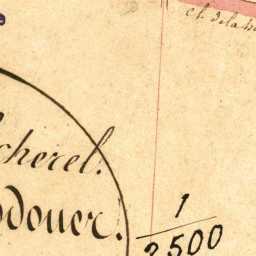 ch. de la
cherel.
douer.
1
2500